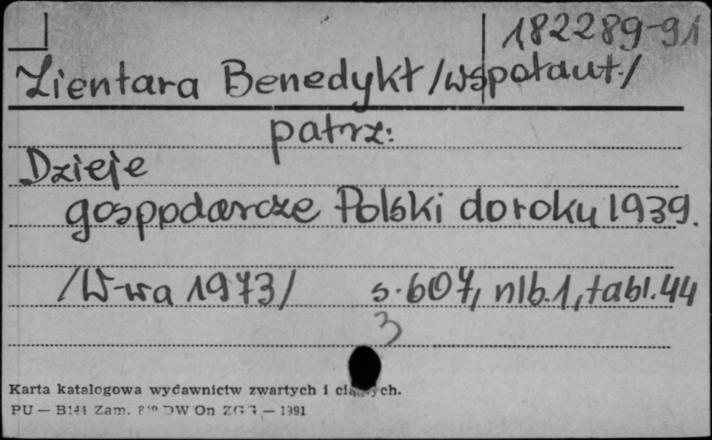 182289-91
Zientara Benedykt /współaut./
patrz:
Dzieje
gospodarcze Polski do roku 1939.
/W-wa 1973/ s. 607, nlb. 1, tabl. 44
3
Karta katalogowa wydawnictw zwartych i ch.
PU — B144 Zam. DW On — 1991